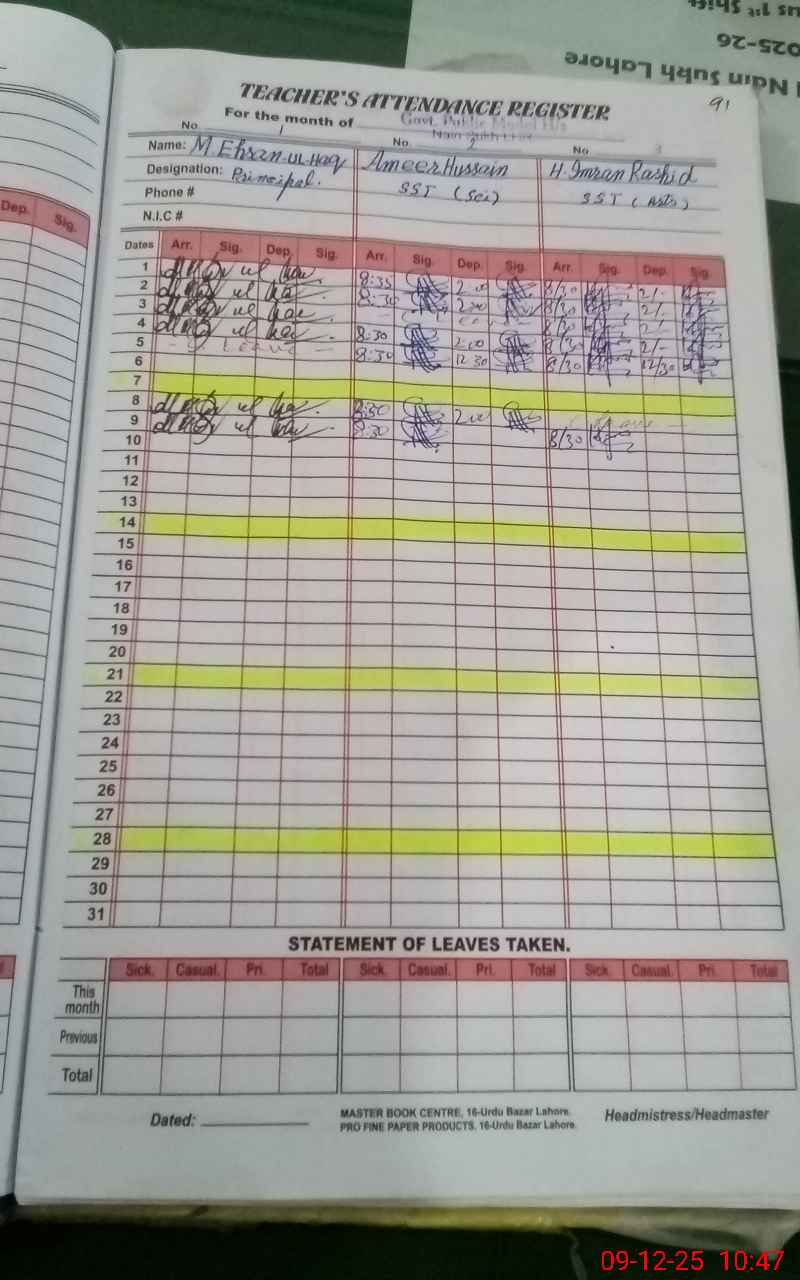 us 1st Shift
2025-26
Nain Sukh Lahore
91
TEACHER'S ATTENDANCE REGISTER
For the month of
Govt. Public Model H/s
No. 1 No. 2 No. 3
Name: M Ehsan-ul-Haq Ameer Hussain H. Imran Rashid
Designation: Principal. SST (Sci) SST (Arts)
Phone #
N.I.C #
Dep. Sig.
Dates Arr. Sig. Dep. Sig. Arr. Sig. Dep. Sig. Arr. Sig. Dep. Sig.
1 8:35 2:00 8/30 2/-
2 8:30 2:00 8/30 2/-
3 8/30 2/-
4 8:30 2:00 8/30 2/-
5 Leave 8:30 12:30 8/30 12/30
6
7
8 8:30 2:00 Leave
9 8:30 8/30
10
11
12
13
14
15
16
17
18
19
20
21
22
23
24
25
26
27
28
29
30
31
STATEMENT OF LEAVES TAKEN.
Sick. Casual. Pri. Total Sick. Casual. Pri. Total Sick. Casual. Pri. Total
This month
Previous
Total
Dated:
MASTER BOOK CENTRE, 16-Urdu Bazar Lahore.
PRO FINE PAPER PRODUCTS, 16-Urdu Bazar Lahore.
Headmistress/Headmaster
09-12-25 10:47